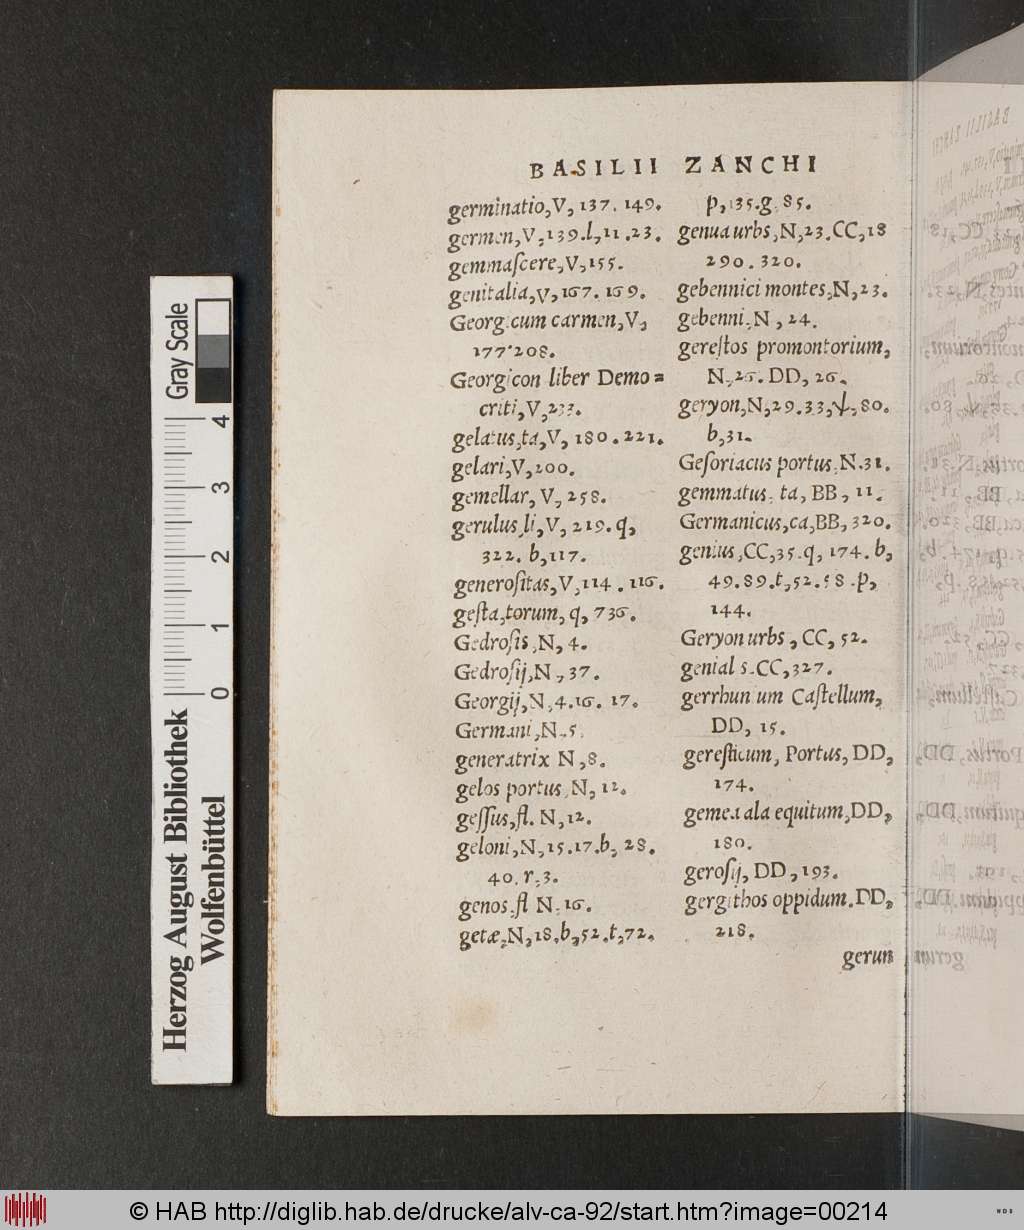 BASILII ZANCHI
germinatio,V, 137. 149.
germen,V,139.l,11.23.
gemmaſcere,V,155.
genitalia,V,167. 169.
Georgicum carmen,V,
177.208.
Georgicon liber Demo=
criti,V,233.
gelatus,ta,V, 180.221.
gelari,V,200.
gemellar, V, 258.
gerulus,li,V, 219.q,
322. b,117.
generoſitas,V,114.116.
geſta,torum, q, 736.
Gedroſis,N, 4.
Gedroſij,N, 37.
Georgij,N,4.16. 17.
Germani,N.5.
generatrix N,8.
gelos portus,N, 12.
geſſus,fl. N,12.
geloni,N,15.17.b, 28.
40.r,3.
genos.fl N.16.
getæ,N,18.b,52.t,72.
p,135.g.85.
genua urbs,N,23.CC,18
290.320.
gebennici montes,N,23.
gebenni,N, 24.
gereſtos promontorium,
N,26.DD, 26.
geryon,N,29.33,ψ,80.
b,31.
Geſoriacus portus.N.31.
gemmatus, ta, BB, 11.
Germanicus,ca,BB, 320.
genius,CC,35.q, 174.b,
49.89.t,52.58.p,
144.
Geryon urbs, CC, 52.
genial s.CC,327.
gerrhun um Caſtellum,
DD, 15.
gereſticum, Portus, DD,
174.
gemea ala equitum,DD,
180.
geroſij, DD,193.
gergithos oppidum.DD,
218.
gerun
Gray Scale
4 3 2 1 0
Herzog August Bibliothek
Wolfenbüttel
© HAB http://diglib.hab.de/drucke/alv-ca-92/start.htm?image=00214